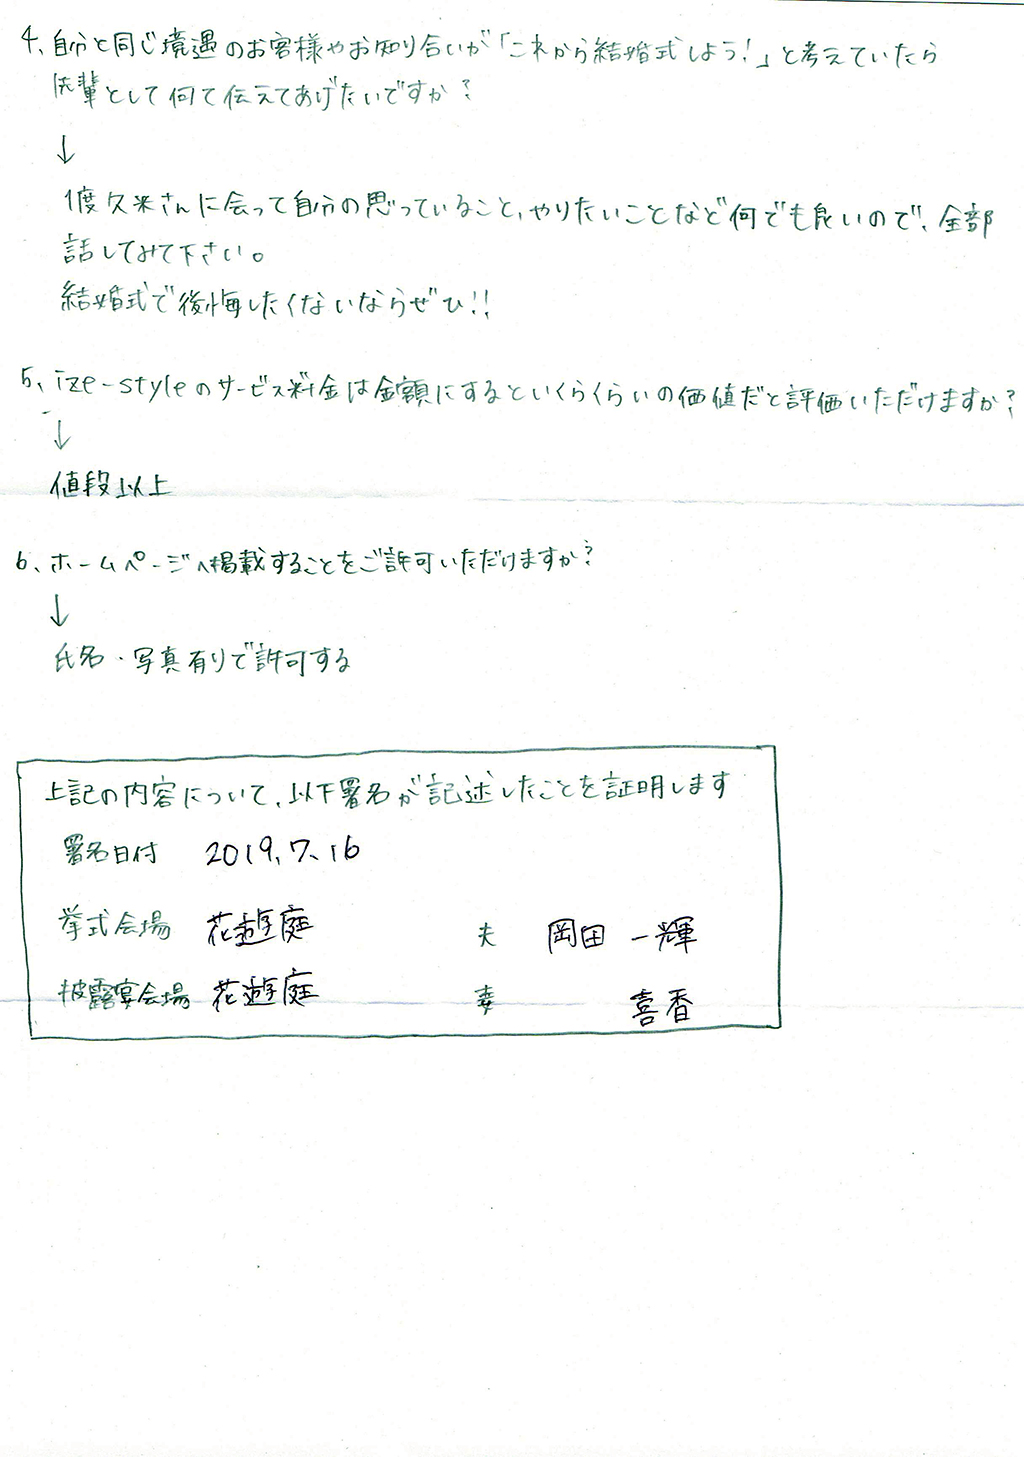 4、自分と同じ境遇のお客様やお知り合いが「これから結婚式しよう!」と考えていたら
先輩として何て伝えてあげたいですか?
↓
1度久米さんに会って自分の思っていること、やりたいことなど何でも良いので、全部
話してみて下さい。
結婚式で後悔したくないならぜひ!!
5、ize-styleのサービス料金は金額にするといくらくらいの価値だと評価いただけますか?
↓
値段以上
6、ホームページへ掲載することをご許可いただけますか?
↓
氏名・写真有りで許可する
上記の内容について、以下署名が記述したことを証明します
署名日付 2019.7.16
挙式会場 花遊庭 夫 岡田 一輝
披露宴会場 花遊庭 妻 喜香